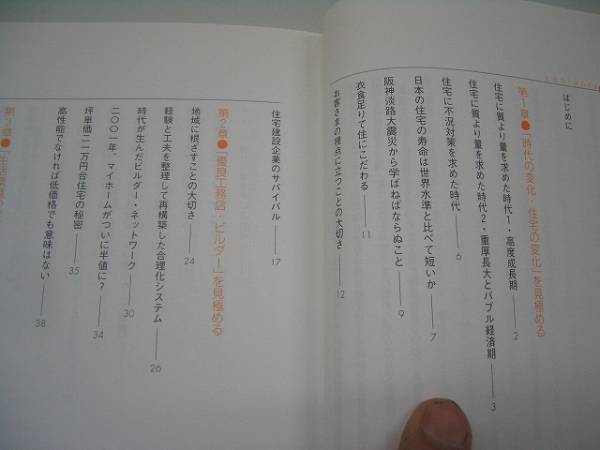 はじめに
第1章●「時代の変化・住宅の変化」を見極める
住宅に質より量を求めた時代1・高度成長期――2
住宅に質より量を求めた時代2・重厚長大とバブル経済期――3
住宅に不況対策を求めた時代――6
日本の住宅の寿命は世界水準と比べて短いか――7
阪神淡路大震災から学ばねばならぬこと――9
衣食足りて住にこだわる――11
お客さまの視点に立つことの大切さ――12
住宅建設企業のサバイバル――17
第2章●「優良工務店・ビルダー」を見極める
地域に根ざすことの大切さ――24
経験と工夫を整理して再構築した合理化システム――26
時代が生んだビルダー・ネットワーク――30
二〇〇一年、マイホームがついに半値に?――34
坪単価二一万円台住宅の秘密――35
高性能でなければ低価格でも意味はない――38
第3章●